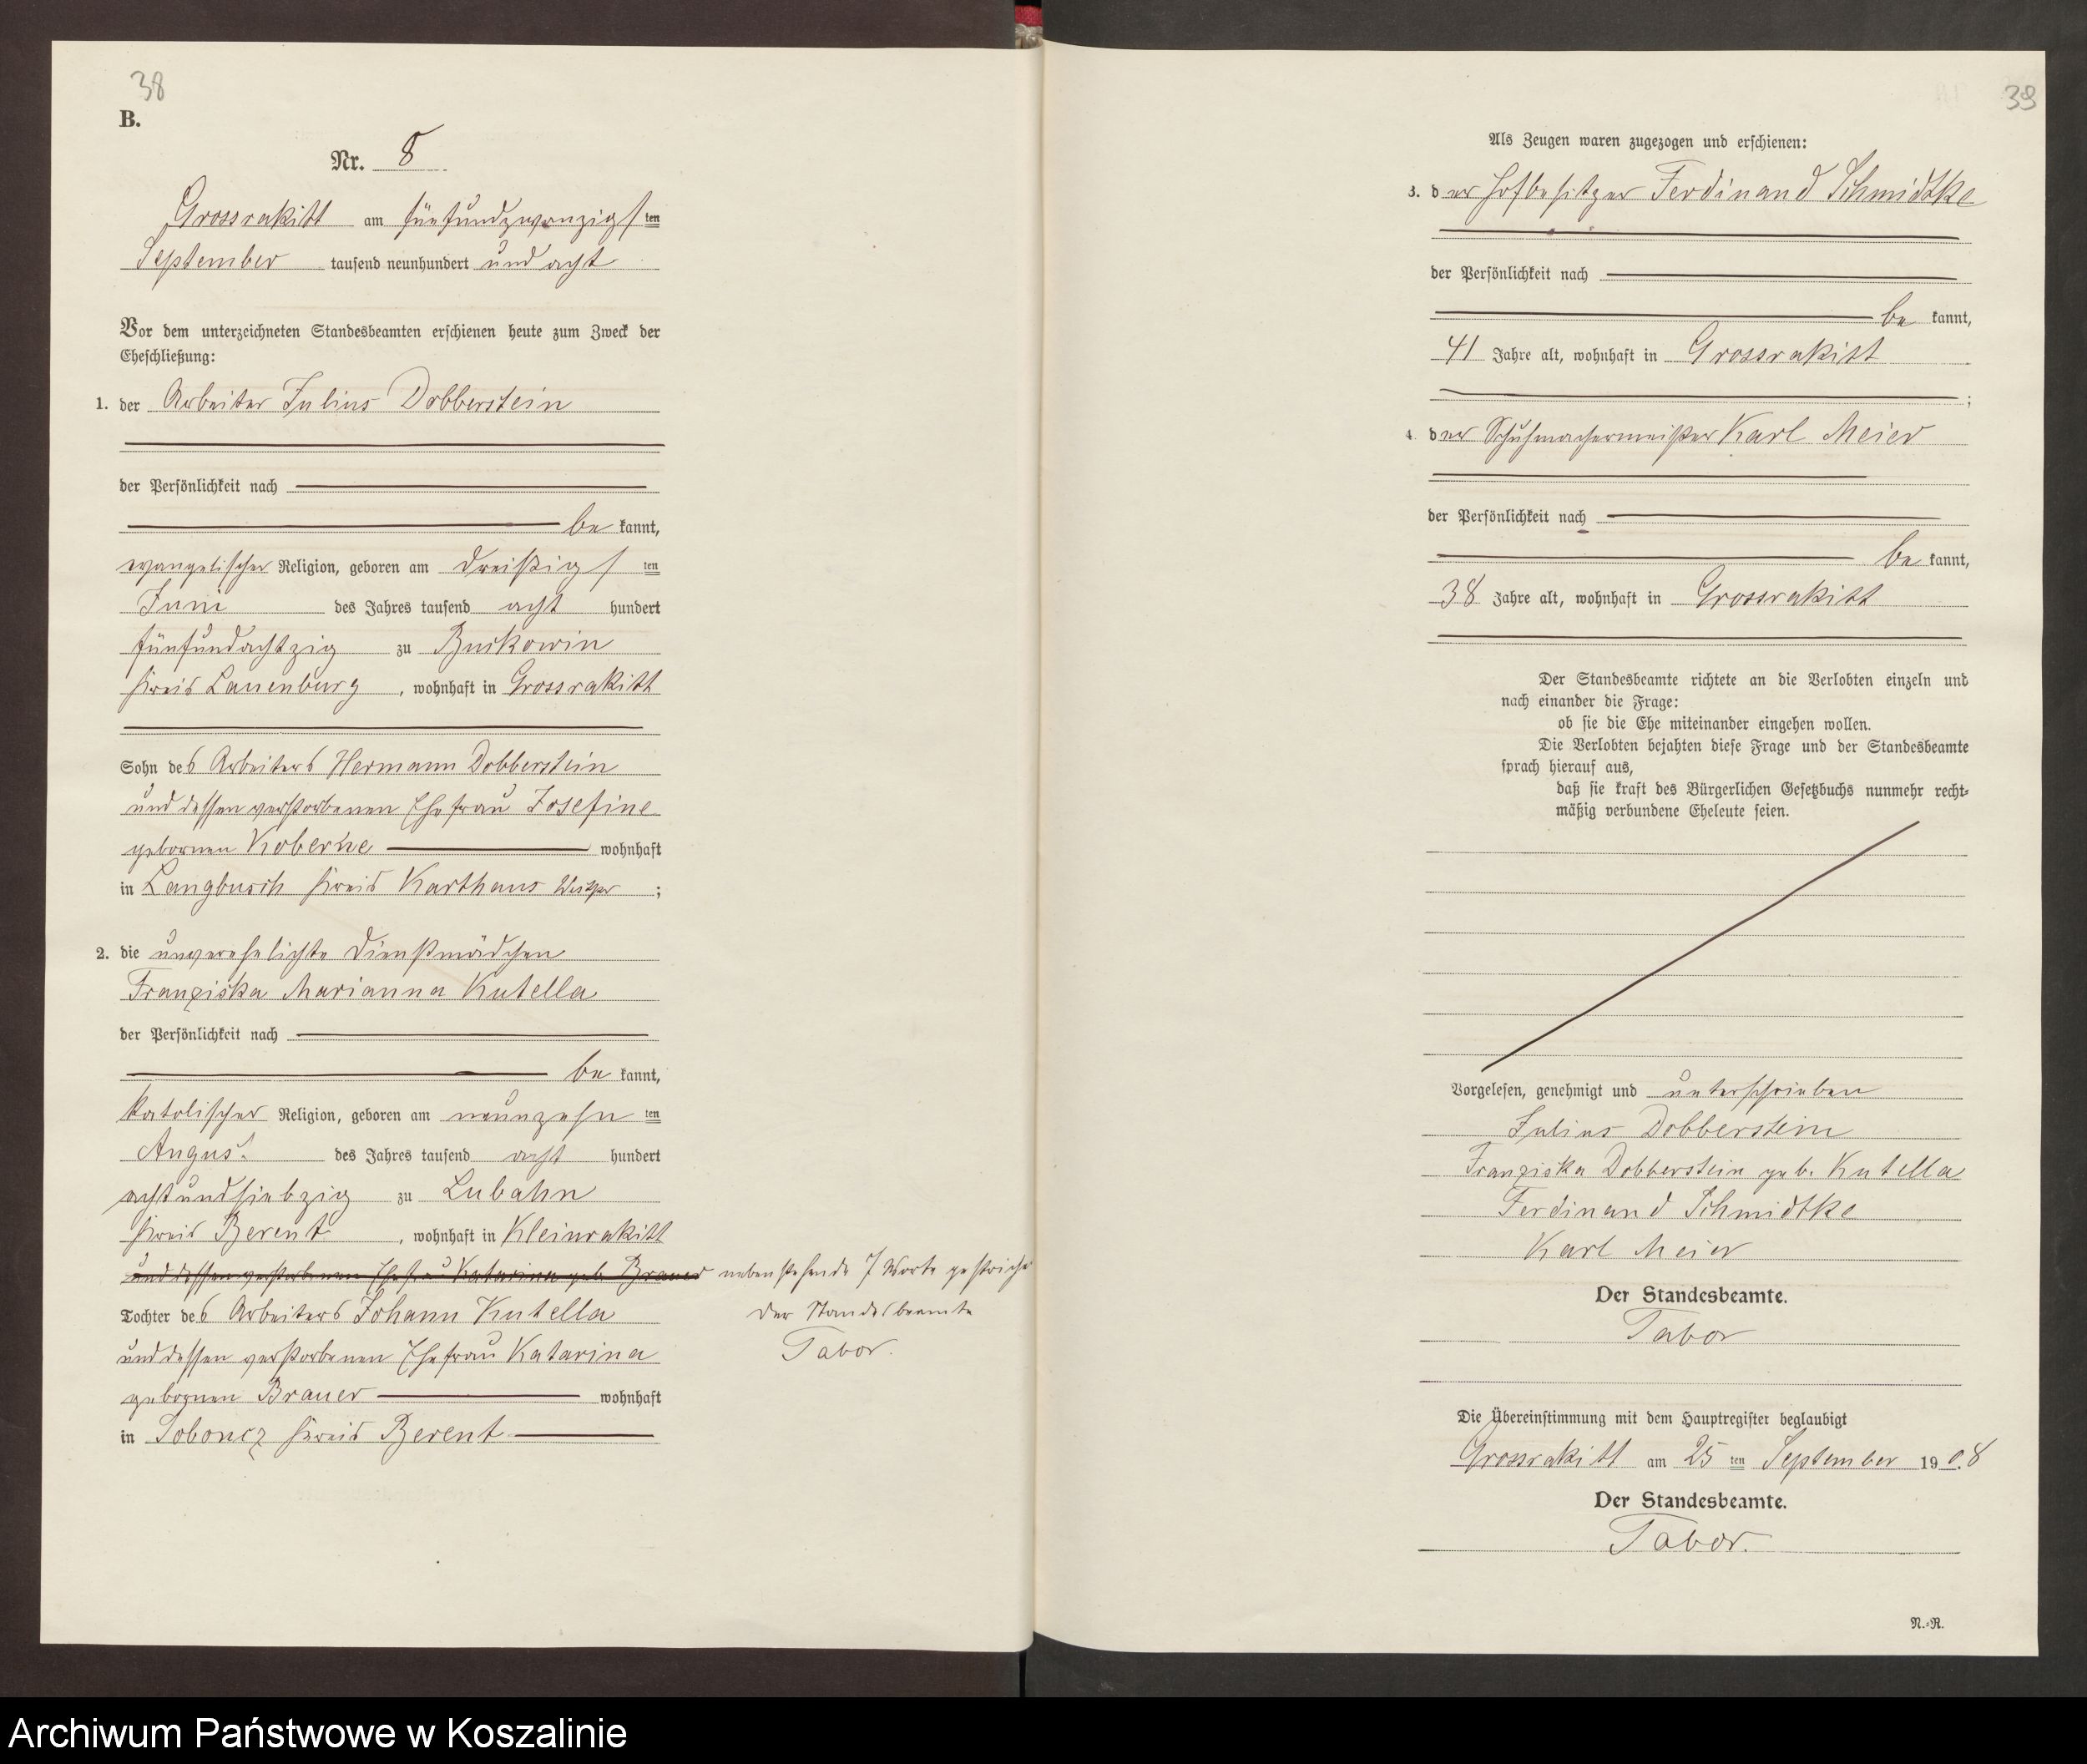 38
B.
Nr. 8
Grossrakitt am fünfundzwanzigsten
September tausend neunhundert und acht
Vor dem unterzeichneten Standesbeamten erschienen heute zum Zweck der
Eheschließung:
1. der Arbeiter Julius Dobberstein
der Persönlichkeit nach
be kannt,
evangelischer Religion, geboren am dreißigsten
Juni des Jahres tausend acht hundert
fünfundachtzig zu Buckowin
Kreis Lauenburg, wohnhaft in Grossrakitt
Sohn des Arbeiters Hermann Dobberstein
und dessen verstorbenen Ehefrau Josefine
gebornen Koberne wohnhaft
in Langbusch Kreis Karthaus Westpr ;
2. die unverehelichte Dienstmädchen
Franziska Marianna Kutella
der Persönlichkeit nach
be kannt,
katolischer Religion, geboren am neunzehn ten
August des Jahres tausend acht hundert
achtundsiebzig zu Lubahn
Kreis Berent, wohnhaft in Kleinrakitt
und dessen verstorbenen Ehefrau Katarina geb. Brauer nebenstehende 7 Worte gestrichen
Der Standesbeamte
Tabor.
Tochter des Arbeiters Johann Kutella
und dessen verstorbenen Ehefrau Katarina
gebornen Brauer wohnhaft
in Soboncz Kreis Berent
39
Als Zeugen waren zugezogen und erschienen:
3. der Hofbesitzer Ferdinand Schmidtke
der Persönlichkeit nach
be kannt,
41 Jahre alt, wohnhaft in Grossrakitt
;
4. der Schuhmachermeister Karl Meier
der Persönlichkeit nach
be kannt,
38 Jahre alt, wohnhaft in Grossrakitt
Der Standesbeamte richtete an die Verlobten einzeln und
nach einander die Frage:
ob sie die Ehe miteinander eingehen wollen.
Die Verlobten bejahten diese Frage und der Standesbeamte
sprach hierauf aus,
daß sie kraft des Bürgerlichen Gesetzbuchs nunmehr recht-
mäßig verbundene Eheleute seien.
Vorgelesen, genehmigt und unterschrieben
Julius Dobberstein
Franziska Dobberstein geb. Kutella
Ferdinand Schmidtke
Karl Meier
Der Standesbeamte.
Tabor
Die Übereinstimmung mit dem Hauptregister beglaubigt
Grossrakitt am 25 ten September 1908
Der Standesbeamte.
Tabor.
N.-R.
Archiwum Państwowe w Koszalinie